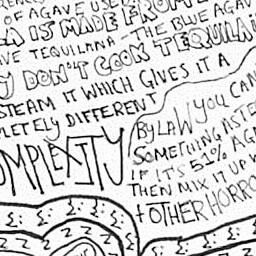 OF AGAVE USED
A IS MADE FROM
VE TEQUILANA - THE BLUE AGAV
Y DON'T COOK TEQUILA
STEAM IT WHICH GIVES IT A
LETELY DIFFERENT
OMPLEXITY
By LAW YOU CAN
SOMETHING
IF IT'S 51% AGA
THEN MIX IT UP W
+ OTHER HORRO